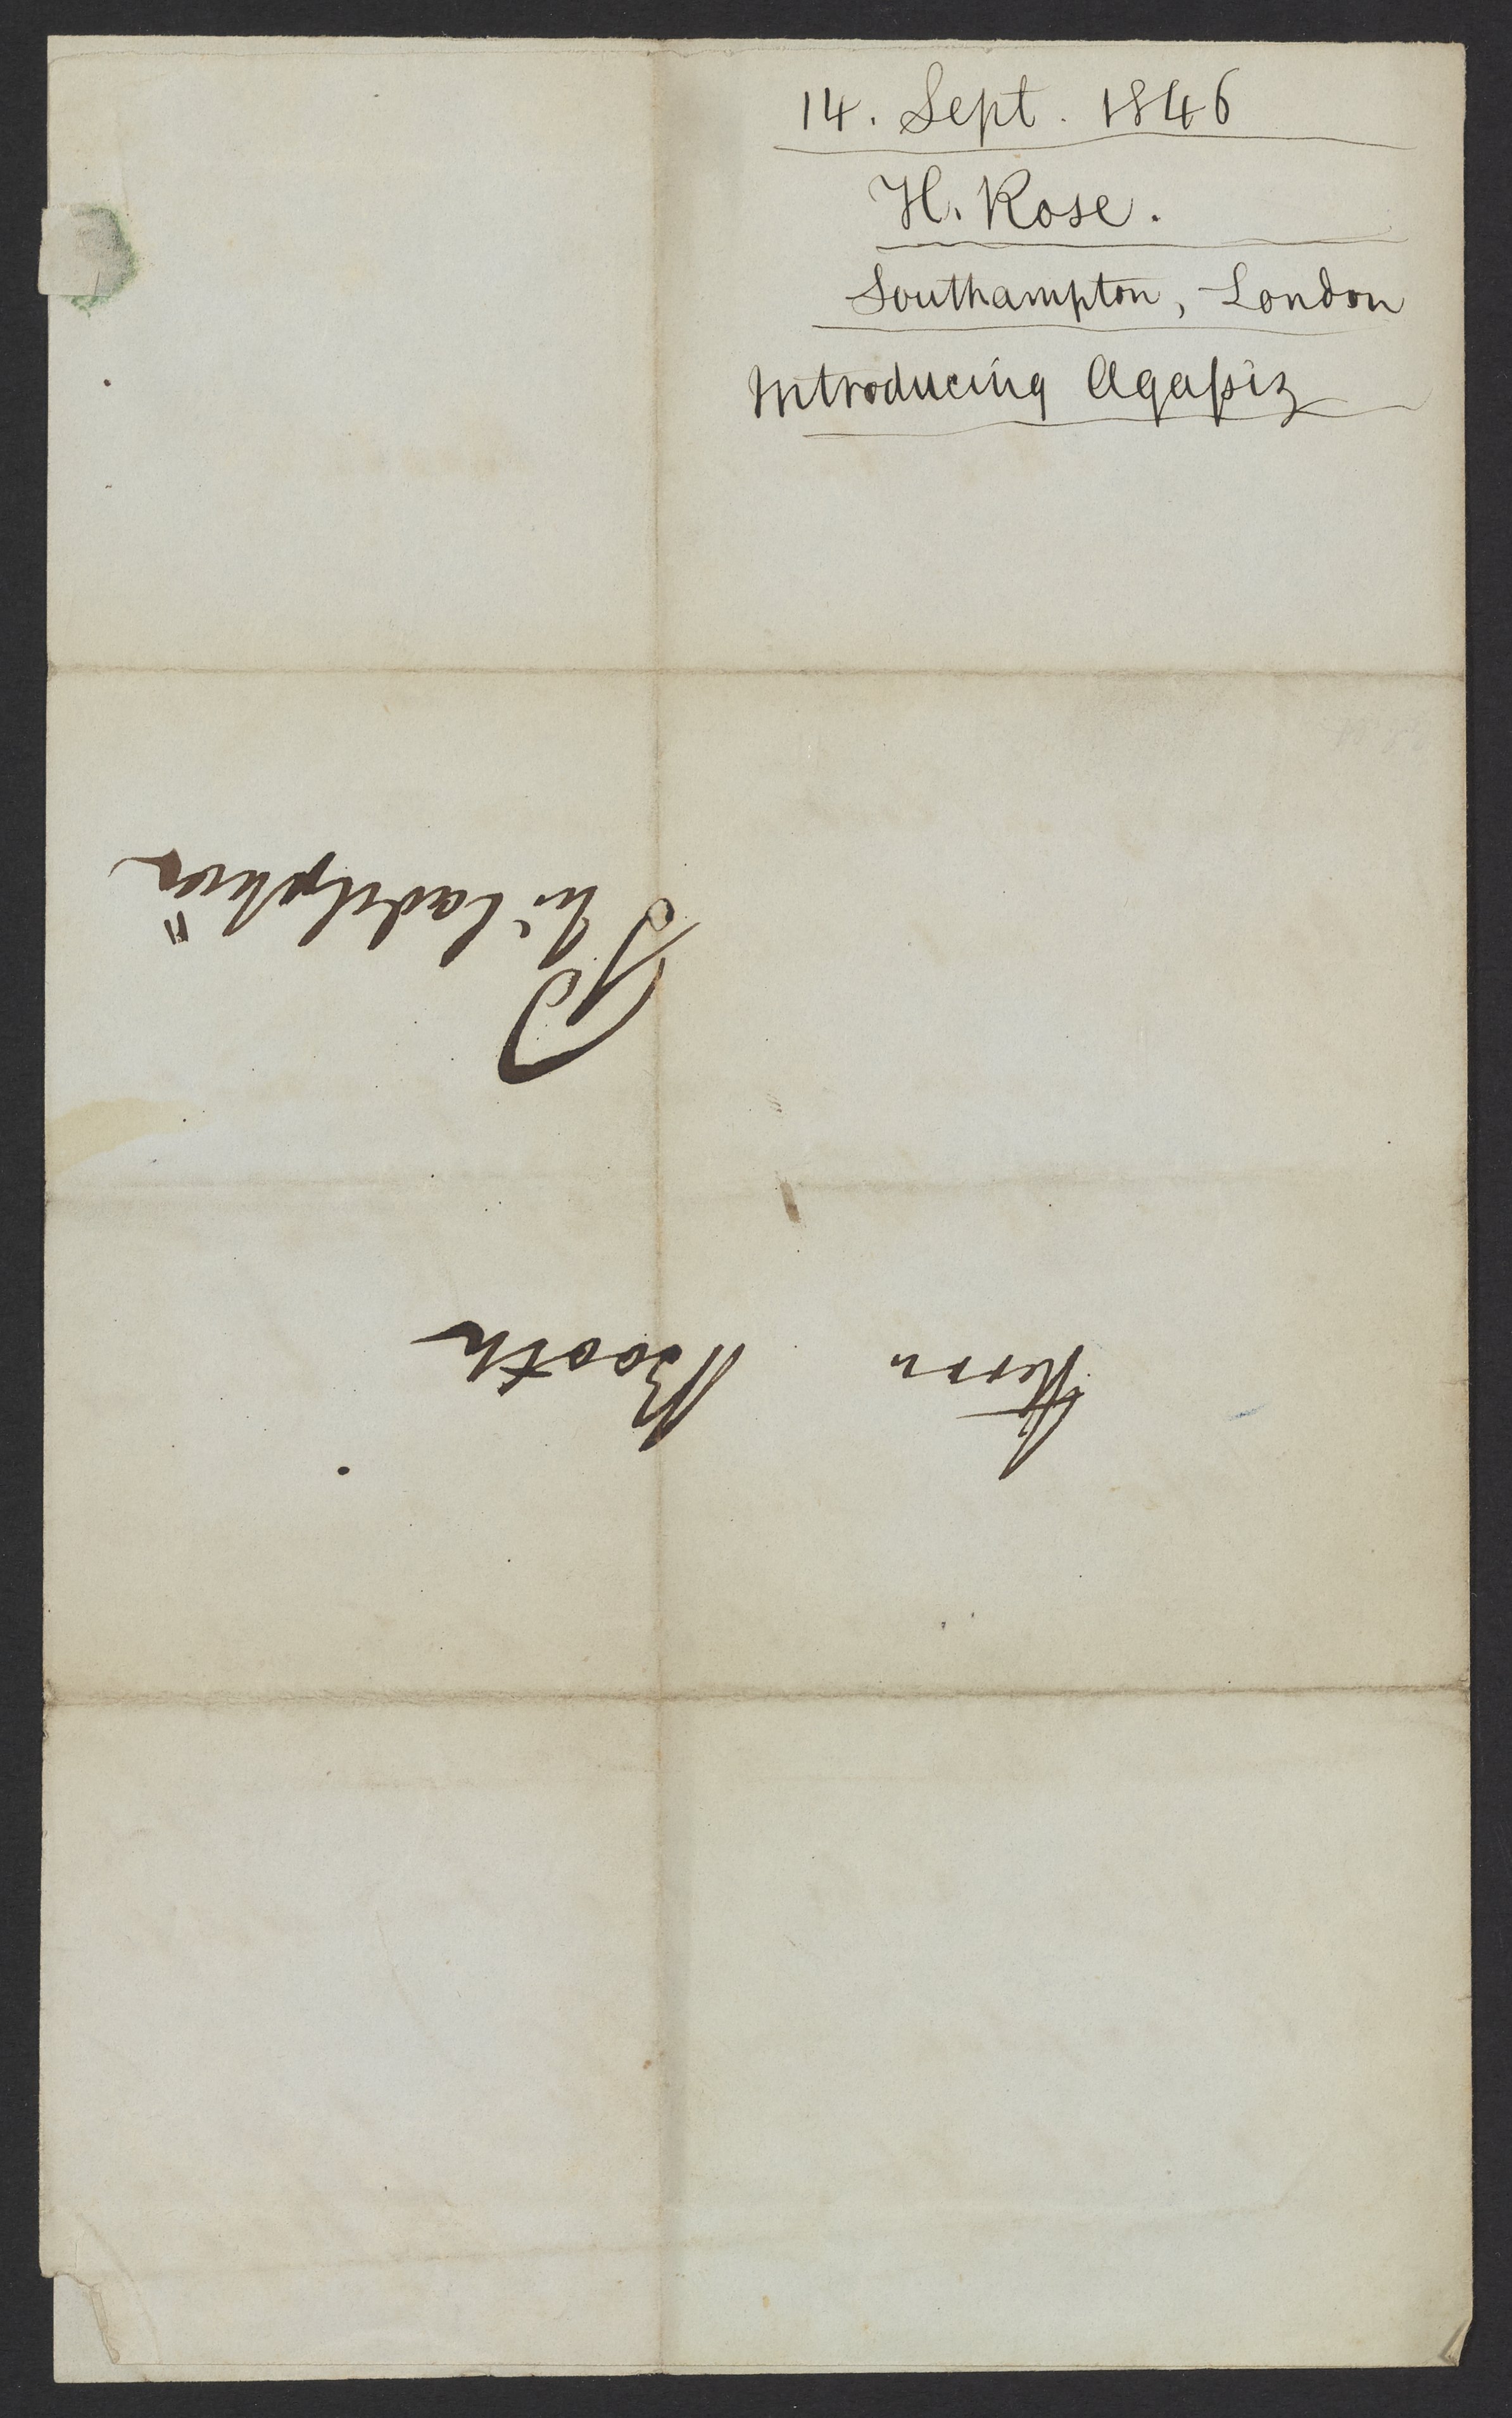 14. Sept. 1846
H. Rose.
Southampton, London
Introducing Agassiz
Herrn Booth
Philadelphia